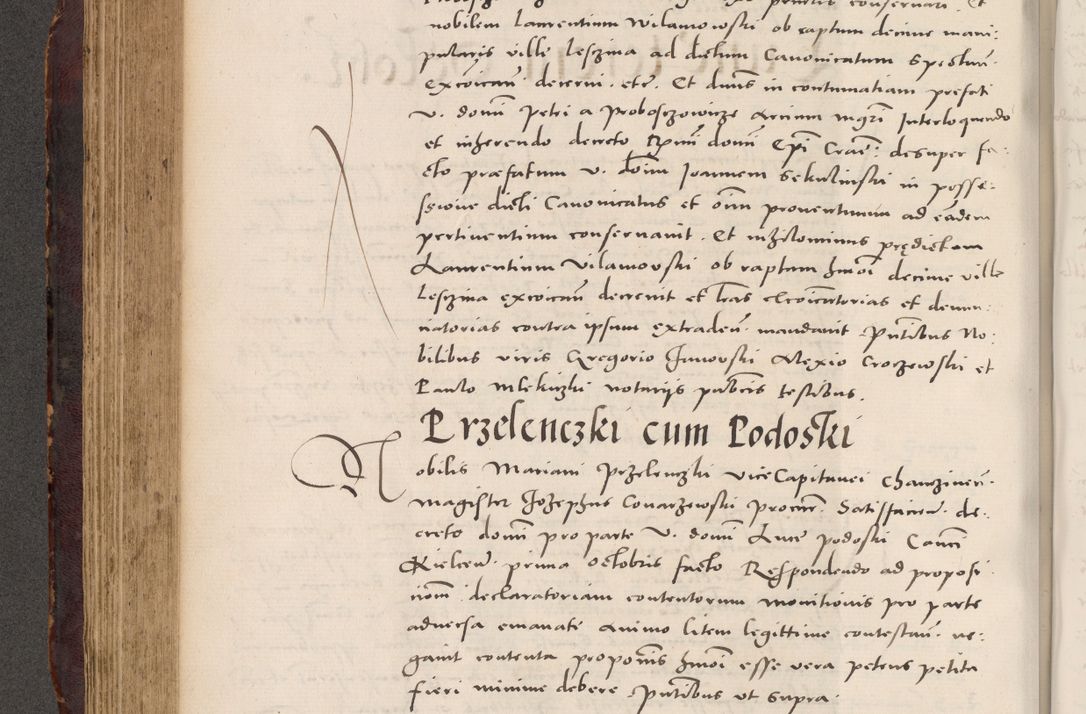 nobilem Laurentium Wilamowski ob raptum decime mani:
pularis ville Leszina ad dictum Canonicatum spectan̄.
excōican̄ decerni. etc̄. Et dn̄us in contumatiam prefati
v. domī Petri a Proboszowicze Arcium mgrī Interloquendo
et inherendo decreto Rm̄i domī Ep̄i Crac̄: desuper fa:
cto præfatum v. dōim Joannem Sekulinski in posse:
ssione dicti Canonicatus et oīm proventuum ad eādem
pertinentium conservavit. Et nihilominus prędictum
Laurentium Vilamovski ob raptum hmōi decime ville
Leszina excōican̄ decrevit et lr̄as excōicatorias et denun:
natorias contra ipsum extraden̄. mandavit Pn̄tibus No:
bilibus viris Gregorio Junovski Alexio Croczewski et
Paulo Mlekiczki notarijs pub̄cis testibus.
Przelenczki cum Podoski
Nobilis Mariani Przelenczki viceCapitanei Chanczinen̄.
magister Jozephus Conarzewski procur̄. Satisfacien̄. de:
creto domī pro parte v. domī Luce Podoski Canc̄i
Kielcen̄. prima octobris facto Respondendo ad proposi
nōm̄. declaratoriam contentorum monitionis pro parte
adversa emanate animo litem legittime contestan̄. ne:
gavit contenta propon̄is hmōi esse vera petens petita
fieri minime debere Pn̄tibus ut supra.